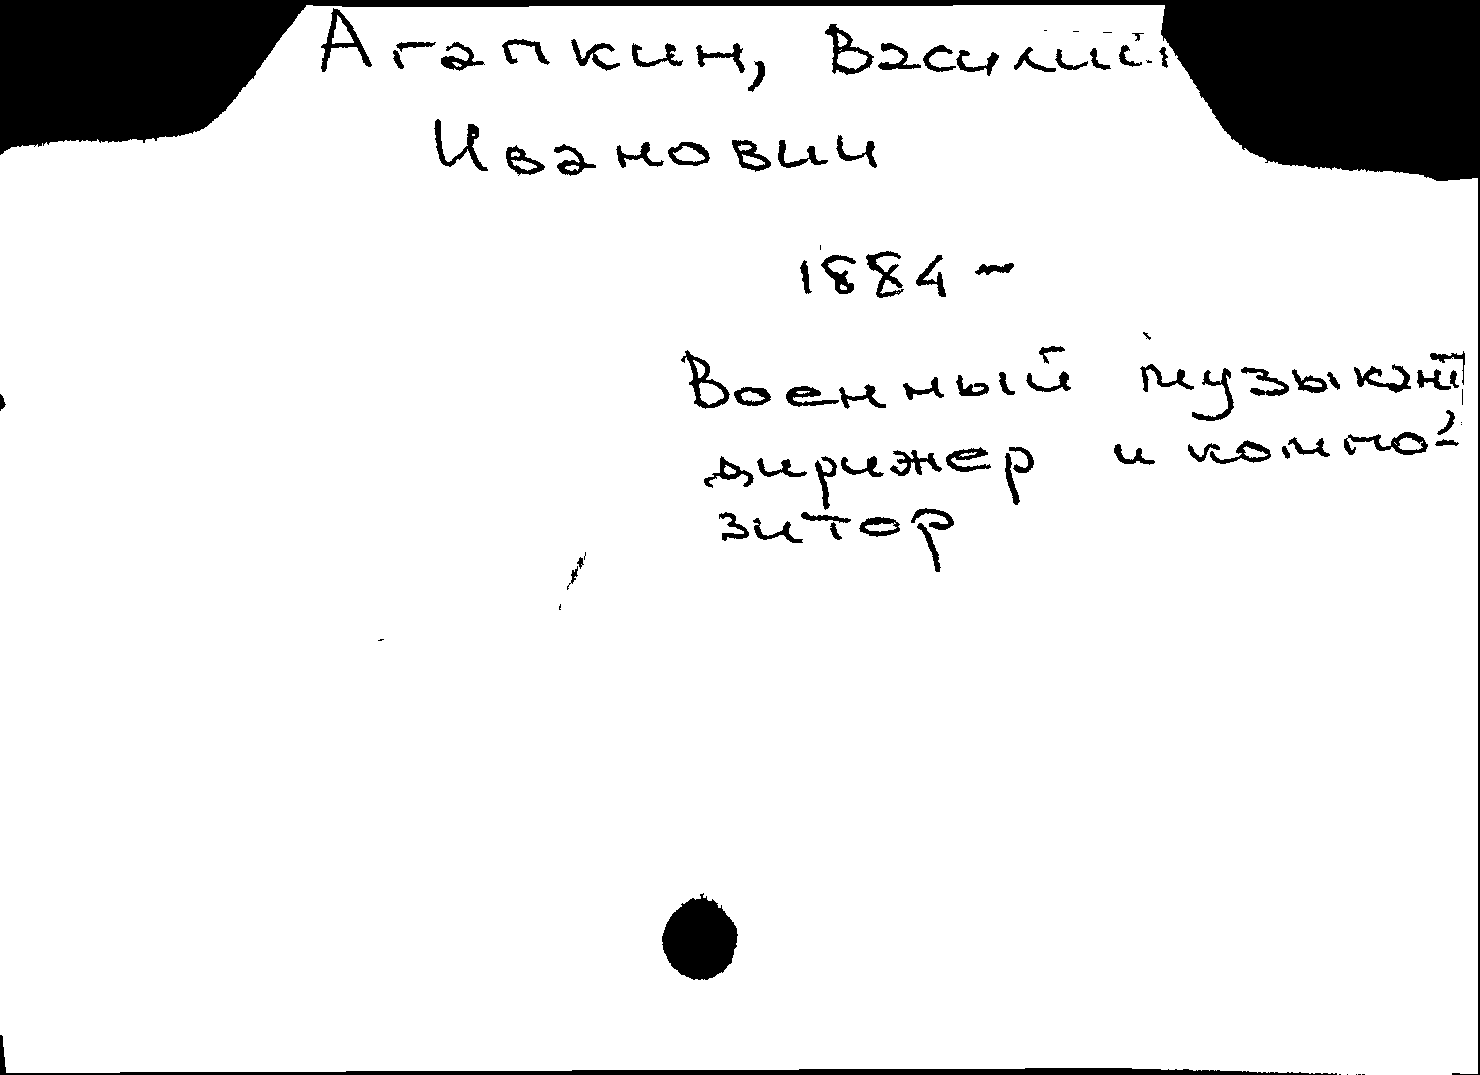 Агапкин, Василий
Иванович
1884 –
Военный музыкант,
дирижер и компо-
зитор